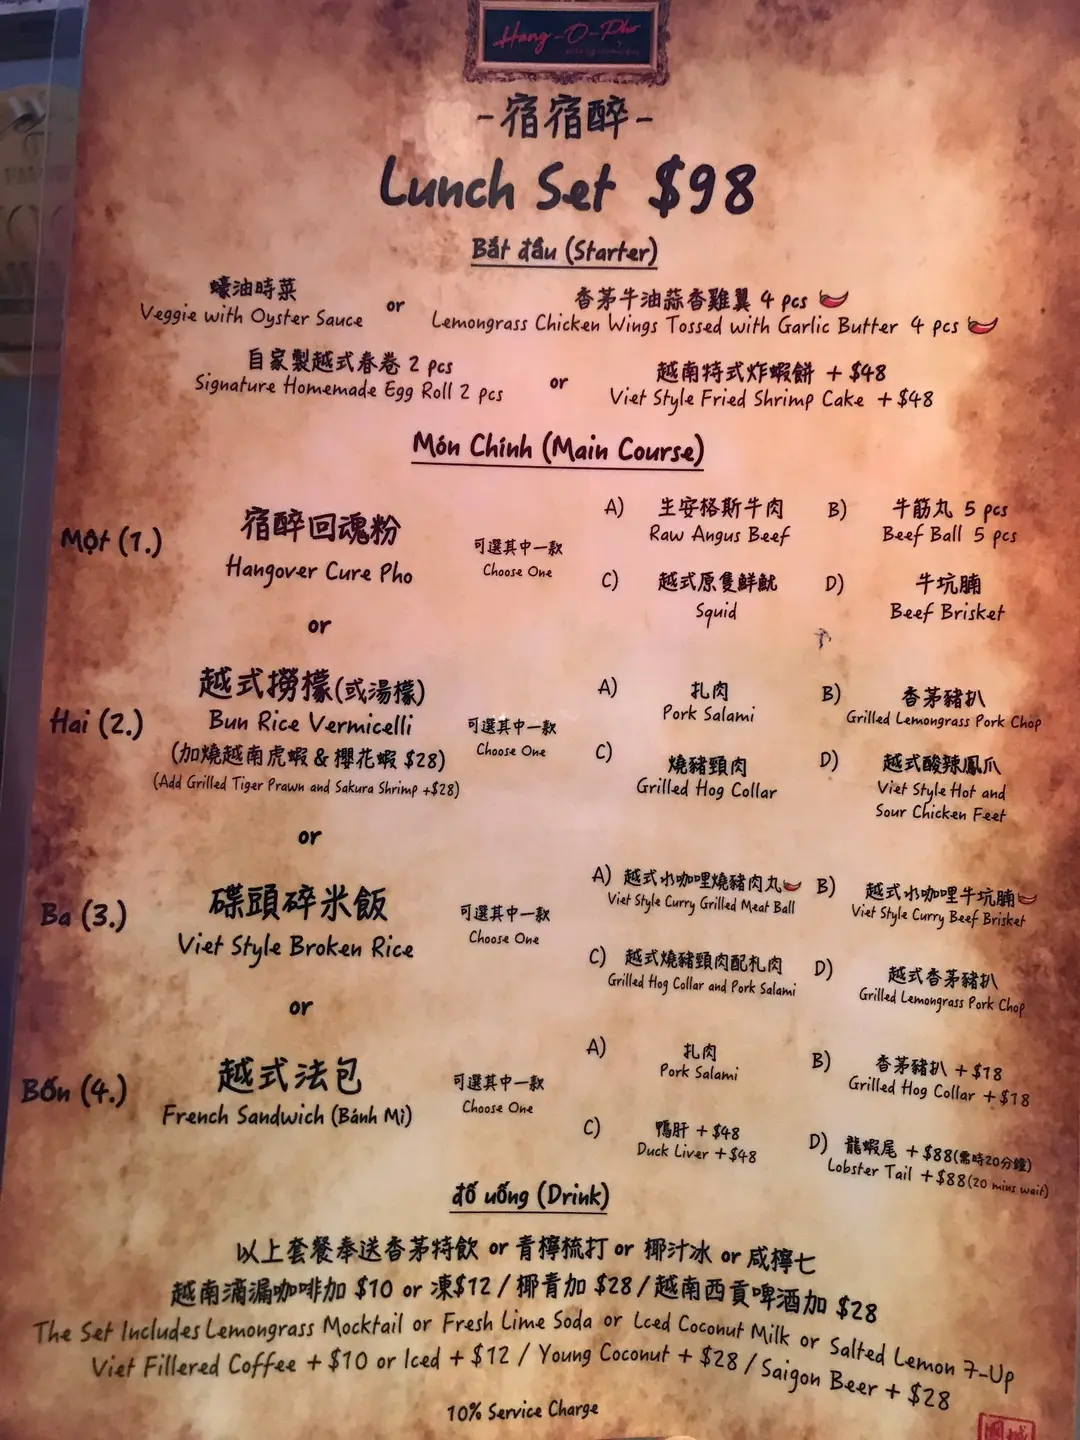 Hang-O-Pho
-宿宿醉-
Lunch Set $98
Bắt đầu (Starter)
蠔油時菜
Veggie with Oyster Sauce
or
香茅牛油蒜香雞翼 4 pcs
Lemongrass Chicken Wings Tossed with Garlic Butter 4 pcs
自家製越式春卷 2 pcs
Signature Homemade Egg Roll 2 pcs
or
越南特式炸蝦餅 + $48
Viet Style Fried Shrimp Cake + $48
Món Chính (Main Course)
Một (1.)
宿醉回魂粉
Hangover Cure Pho
可選其中一款
Choose One
A) 生安格斯牛肉
Raw Angus Beef
B) 牛筋丸 5 pcs
Beef Ball 5 pcs
C) 越式原隻鮮魷
Squid
D) 牛坑腩
Beef Brisket
or
Hai (2.)
越式撈檬(或湯檬)
Bun Rice Vermicelli
(加燒越南虎蝦 & 櫻花蝦 $28)
(Add Grilled Tiger Prawn and Sakura Shrimp +$28)
可選其中一款
Choose One
A) 扎肉
Pork Salami
B) 香茅豬扒
Grilled Lemongrass Pork Chop
C) 燒豬頸肉
Grilled Hog Collar
D) 越式酸辣鳳爪
Viet Style Hot and
Sour Chicken Feet
or
Ba (3.)
碟頭碎米飯
Viet Style Broken Rice
可選其中一款
Choose One
A) 越式水咖哩燒豬肉丸
Viet Style Curry Grilled Meat Ball
B) 越式水咖哩牛坑腩
Viet Style Curry Beef Brisket
C) 越式燒豬頸肉配札肉
Grilled Hog Collar and Pork Salami
D) 越式香茅豬扒
Grilled Lemongrass Pork Chop
or
Bốn (4.)
越式法包
French Sandwich (Bánh Mì)
可選其中一款
Choose One
A) 扎肉
Pork Salami
B) 香茅豬扒 + $18
Grilled Hog Collar + $18
C) 鴨肝 + $48
Duck Liver + $48
D) 龍蝦尾 + $88(需時20分鐘)
Lobster Tail + $88(20 mins wait)
đồ uống (Drink)
以上套餐奉送香茅特飲 or 青檸梳打 or 椰汁冰 or 咸檸七
越南滴漏咖啡加 $10 or 凍$12 / 椰青加 $28 / 越南西貢啤酒加 $28
The Set Includes Lemongrass Mocktail or Fresh Lime Soda or Lced Coconut Milk or Salted Lemon 7-Up
Viet Fillered Coffee + $10 or Iced + $12 / Young Coconut + $28 / Saigon Beer + $28
10% Service Charge